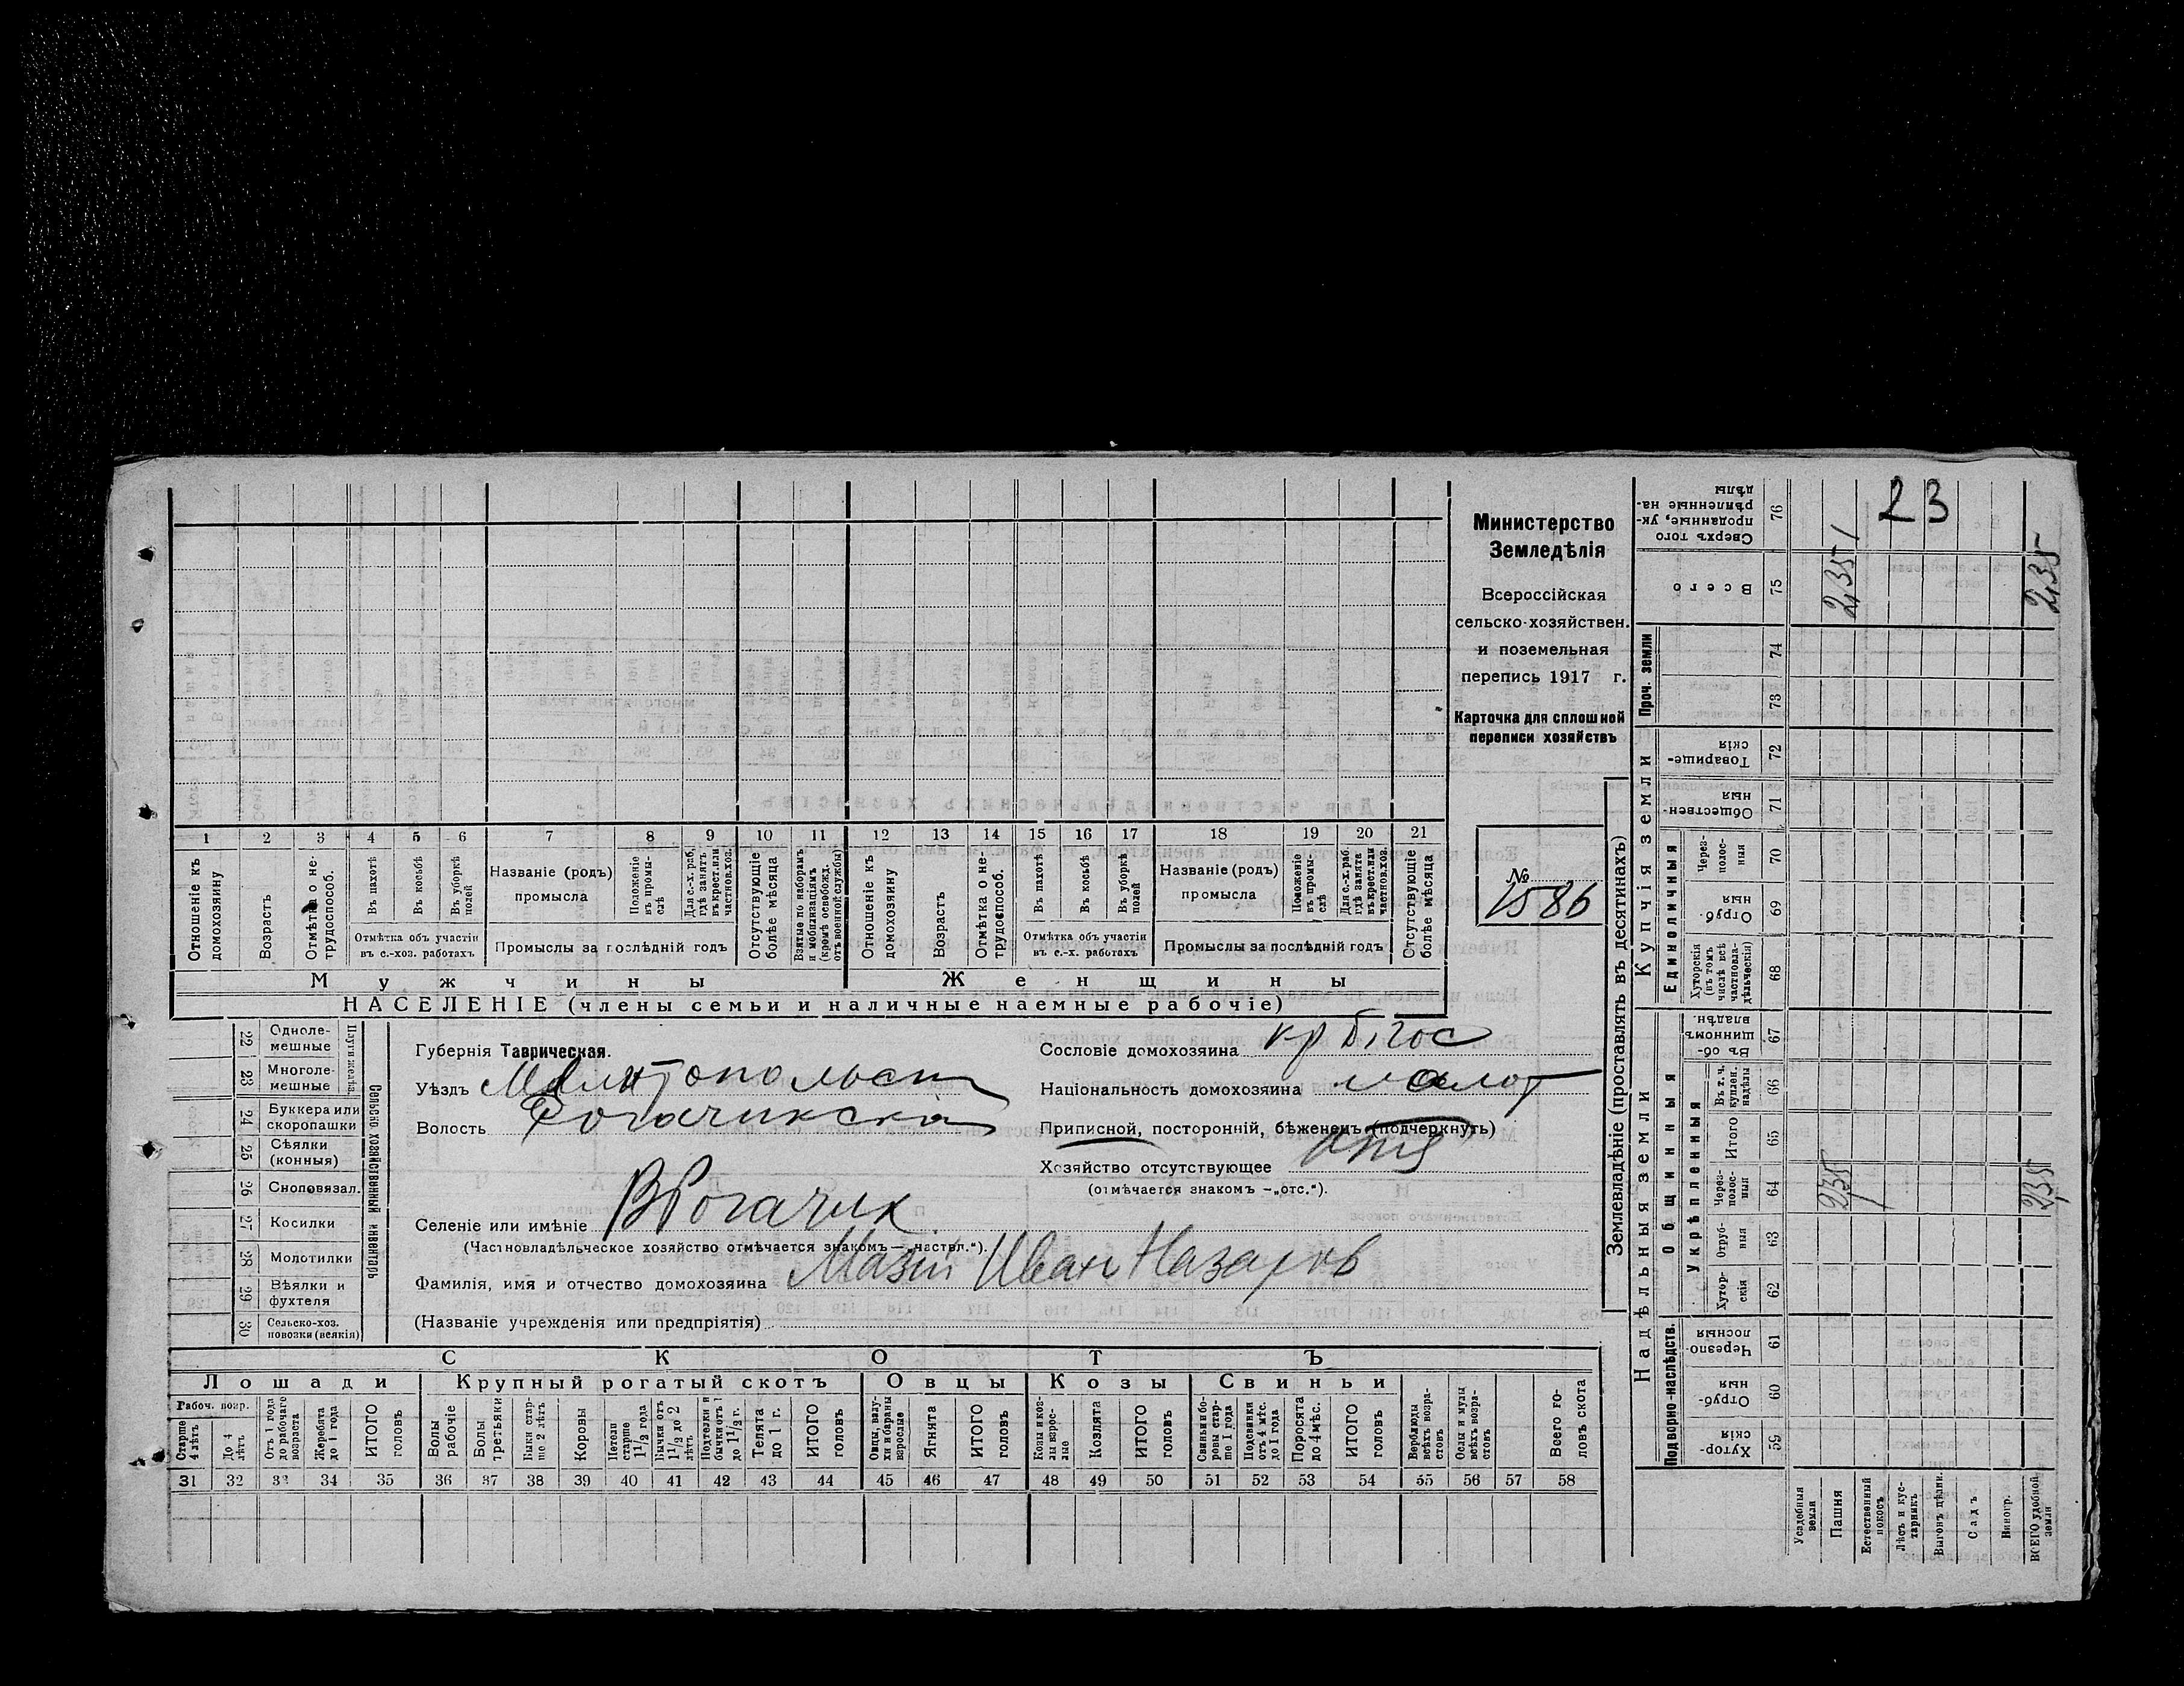 23
Министерство
Земледѣлія
Всероссійская
сельско-хозяйствен.
и поземельная
перепись 1917 г.
Карточка для сплошной
переписи хозяйствъ
№
1586
1 2 3 4 5 6 7 8 9 10 11 12 13 14 15 16 17 18 19 20 21
Отношеніе къ домохозяину
Возрастъ
Отмѣтка о не-трудоспособ.
Въ пахотѣ
Въ косьбѣ
Въ уборкѣ полей
Отмѣтка объ участіи
въ с.-хоз. работахъ
Названіе (родъ)
промысла
Положеніе въ промы-слѣ
Для с.-х. раб., гдѣ занятъ въ крест. или частновл. хоз.
Промыслы за послѣдній годъ
Отсутствующіе болѣе мѣсяца
Взятые по наборамъ и мобилизаціямъ (кромѣ освобожд. отъ военной службы)
Отношеніе къ домохозяину
Возрастъ
Отмѣтка о не-трудоспособ.
Въ пахотѣ
Въ косьбѣ
Въ уборкѣ полей
Отмѣтка объ участіи
въ с.-х. работахъ
Названіе (родъ)
промысла
Положеніе въ промы-слѣ
Для с.-х. раб. гдѣ занята въ крест. или частновл. хоз.
Промыслы за послѣдній годъ
Отсутствующіе болѣе мѣсяца
Мужчины Женщины
НАСЕЛЕНІЕ (члены семьи и наличные наемные рабочіе)
Сельско хозяйственный инвентарь
22 Одноле-мешные
23 Многоле-мешные
24 Буккера или скоропашки
25 Сѣялки (конныя)
26 Сноповязал.
27 Косилки
28 Молотилки
29 Вѣялки и фухтеля
30 Сельско-хоз. повозки (всякія)
Губернія Таврическая.
Уѣздъ Мелитопольск
Волость Рогачикская
Селеніе или имѣніе В Рогачик
(Частновладѣльческое хозяйство отмѣчается знакомъ — „частвл.“).
Фамилія, имя и отчество домохозяина Мазій Иванъ Назаров
(Названіе учрежденія или предпріятія)
Сословіе домохозяина кр
Національность домохозяина малор
Приписной, посторонній, бѣженецъ (подчеркнуть)
Хозяйство отсутствующее
(отмѣчается знакомъ —„отс.“).
СКОТЪ
Лошади Крупный рогатый скотъ Овцы Козы Свиньи
Рабоч. возр.
Старше 4 лѣтъ
До 4 лѣтъ
Отъ 1 года до рабочаго возраста
Жеребята до 1 года
ИТОГО головъ
Волы рабочіе
Волы третьяки
Быки стар-ше 2 лѣтъ
Коровы
Нетели старше 1 1/2 года
Бычки отъ 1 1/2 до 2 лѣтъ
Подтелки и бычки отъ 1 до 1 1/2 г.
Телята до 1 г.
ИТОГО головъ
Овцы, валу-хи и бараны взрослые
Ягнята
ИТОГО головъ
Козы и коз-лы взрос-лые
Козлята
ИТОГО головъ
Свиньи и бо-ровы стар-ше 1 года
Подсвинки отъ 4 мѣс. до 1 года
Поросята до 4 мѣс.
ИТОГО головъ
Верблюды всѣхъ возра-стовъ
Ослы и мулы всѣхъ возра-стовъ
Всего го-ловъ скота
31 32 33 34 35 36 37 38 39 40 41 42 43 44 45 46 47 48 49 50 51 52 53 54 55 56 57 58
Землевладѣніе (проставлять въ десятинахъ)
Надѣльныя земли Купчія земли Проч. земли
Подворно-наслѣдств.
Общинныя
Укрѣпленныя
Единоличныя
Хутор-скія 59
Отруб-ныя 60
Черезпо-лосныя 61
Хутор-скія 62
Отруб-ныя 63
Через-полос-ныя 64 2,35 2,35
Итого 65
Въ т. ч. куплен. надѣлы 66
Въ об-щинномъ владѣн. 67
Хуторскія (въ томъ числѣ всѣ частновла-дѣльческія) 68
Отруб-ныя 69
Через-полос-ныя 70
Обществен-ныя 71
Товарище-скія 72
73
74
Всего 75 2,35 2,35
Сверхъ того проданные, ук-рѣпленные на-дѣлы 76
Усадебныя земли
Пашня
Естественный покосъ
Лѣсъ и кус-тарникъ
Выгонъ цѣлин.
Садъ
Виногр.
ВСЕГО удобной земли